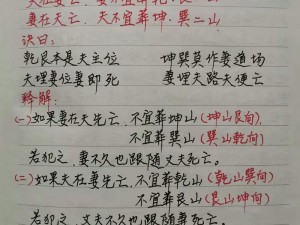 妻在天亡. 夫不宜葬坤·巽二山
诀曰:
乾艮本是夫主位 坤巽莫作妻道场
夫埋妻位妻即死 妻埋夫路夫便亡
释解:
(一)如果妻在夫先亡,不宜葬坤山(坤山艮向)
不宜葬巽山(巽山乾向)
若犯之,妻不久也跟随丈夫死亡。
(二)如果夫在妻先亡,不宜葬乾山(乾山巽向)
不宜葬艮山(艮山坤向)
若犯之,丈夫不久也跟随妻死亡。